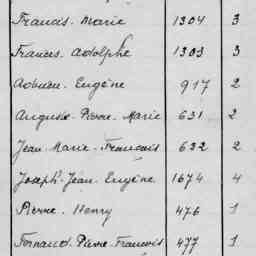 Francis-Marie 1304 3
Frances-Adolphe 1303 3
Eugène 917 2
Auguste-Pierre-Marie 631 2
Jean-Marie-Francois 632 2
Joseph-Jean-Eugène 1674 4
Pierre-Henry 476 1
Fernand-Pierre-Francois 477 1